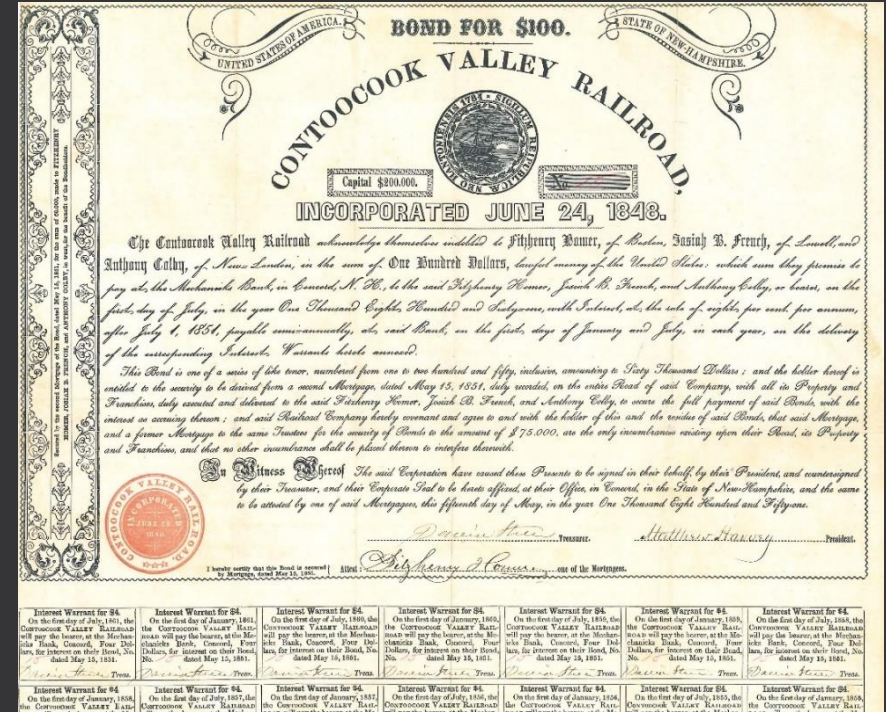 UNITED STATES OF AMERICA.
BOND FOR $100.
STATE OF NEW-HAMPSHIRE.
CONTOOCOOK VALLEY RAILROAD,
SIGILLUM REIPUBLICÆ NEO HANTONIENSIS 1784
Capital $200.000.
No.
INCORPORATED JUNE 24, 1848.
The Contoocook Valley Railroad acknowledge themselves indebted to Fitzhenry Homer, of Boston, Josiah B. French, of Lowell, and
Anthony Colby, of New-London, in the sum of One Hundred Dollars, lawful money of the United States: which sum they promise to
pay at the Mechanicks Bank, in Concord, N. H., to the said Fitzhenry Homer, Josiah B. French, and Anthony Colby, or bearer, on the
first day of July, in the year One Thousand Eight Hundred and Sixtyone, with Interest, at the rate of eight per cent. per annum,
after July 1, 1851, payable semi-annually, at said Bank, on the first days of January and July, in each year, on the delivery
of the corresponding Interest Warrants hereto annexed.
This Bond is one of a series of like tenor, numbered from one to two hundred and fifty, inclusive, amounting to Sixty Thousand Dollars; and the holder hereof is
entitled to the security to be derived from a second Mortgage, dated May 15, 1851, duly recorded, on the entire Road of said Company, with all its Property and
Franchises, duly executed and delivered to the said Fitzhenry Homer, Josiah B. French, and Anthony Colby, to secure the full payment of said Bonds, with the
interest as accruing thereon; and said Railroad Company hereby covenant and agree to and with the holder of this and the residue of said Bonds, that said Mortgage,
and a former Mortgage to the same Trustees for the security of Bonds to the amount of $75.000, are the only incumbrances existing upon their Road, its Property
and Franchises, and that no other incumbrance shall be placed thereon to interfere therewith.
In Witness Whereof The said Corporation have caused these Presents to be signed in their behalf, by their President, and countersigned
by their Treasurer, and their Corporate Seal to be hereto affixed, at their Office, in Concord, in the State of New-Hampshire, and the same
to be attested by one of said Mortgagees, this fifteenth day of May, in the year One Thousand Eight Hundred and Fiftyone.
Treasurer.
Matthew Harvey President.
I hereby certify that this Bond is secured
by Mortgage, dated May 15, 1851.
Attest: Fitzhenry Homer one of the Mortgagees.
CONTOOCOOK VALLEY RAIL ROAD.
INCORPORATED
JUNE 24
1848
Secured by the second Mortgage of the Road, dated May 15, 1851, for the sum of 60.000, made to FITZHENRY
HOMER, JOSIAH B. FRENCH, and ANTHONY COLBY, in trust, for the benefit of the Bondholders.
Interest Warrant for $4.
On the first day of July, 1861, the
CONTOOCOOK VALLEY RAILROAD
will pay the bearer, at the Mechan-
icks Bank, Concord, Four Dol-
lars, for interest on their Bond, No.
15 dated May 15, 1851.
Treas.
Interest Warrant for $4.
On the first day of January, 1861,
the CONTOOCOOK VALLEY RAIL-
ROAD will pay the bearer, at the Me-
chanicks Bank, Concord, Four
Dollars, for interest on their Bond,
No. 15 dated May 15, 1851.
Treas.
Interest Warrant for $4.
On the first day of July, 1860, the
CONTOOCOOK VALLEY RAILROAD
will pay the bearer, at the Mechan-
icks Bank, Concord, Four Dol-
lars, for interest on their Bond, No.
15 dated May 15, 1851.
Treas.
Interest Warrant for $4.
On the first day of January, 1860,
the CONTOOCOOK VALLEY RAIL-
ROAD will pay the bearer, at the Me-
chanicks Bank, Concord, Four
Dollars, for interest on their Bond,
No. 15 dated May 15, 1851.
Treas.
Interest Warrant for $4.
On the first day of July, 1859, the
CONTOOCOOK VALLEY RAILROAD
will pay the bearer, at the Mechan-
icks Bank, Concord, Four Dol-
lars, for interest on their Bond, No.
15 dated May 15, 1851.
Treas.
Interest Warrant for $4.
On the first day of January, 1859,
the CONTOOCOOK VALLEY RAIL-
ROAD will pay the bearer, at the Me-
chanicks Bank, Concord, Four
Dollars, for interest on their Bond,
No. 15 dated May 15, 1851.
Treas.
Interest Warrant for $4.
On the first day of July, 1858, the
CONTOOCOOK VALLEY RAILROAD
will pay the bearer, at the Mechan-
icks Bank, Concord, Four Dol-
lars, for interest on their Bond, No.
15 dated May 15, 1851.
Treas.
Interest Warrant for $4.
On the first day of January, 1858,
the CONTOOCOOK VALLEY RAIL-
Interest Warrant for $4.
On the first day of July, 1857, the
CONTOOCOOK VALLEY RAILROAD
Interest Warrant for $4.
On the first day of January, 1857,
the CONTOOCOOK VALLEY RAIL-
Interest Warrant for $4.
On the first day of July, 1856, the
CONTOOCOOK VALLEY RAILROAD
Interest Warrant for $4.
On the first day of January, 1856,
the CONTOOCOOK VALLEY RAIL-
Interest Warrant for $4.
On the first day of July, 1855, the
CONTOOCOOK VALLEY RAILROAD
Interest Warrant for $4.
On the first day of January, 1855,
the CONTOOCOOK VALLEY RAIL-